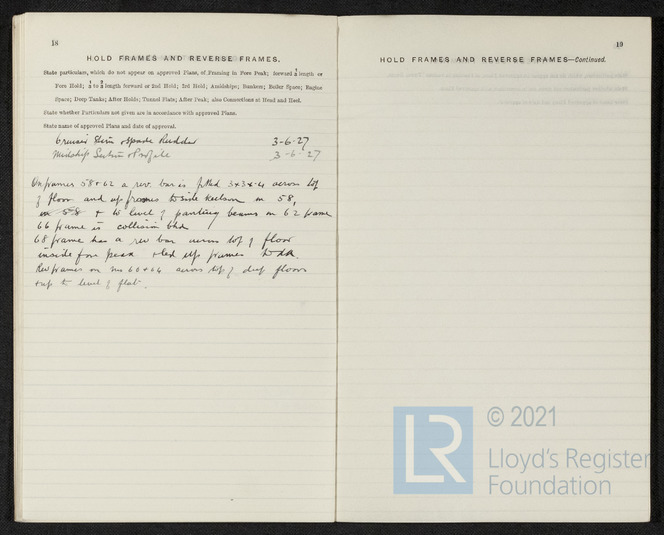 18
HOLD FRAMES AND REVERSE FRAMES.
State particulars, which do not appear on approved Plans, of Framing in Fore Peak; forward ⅕ length or
Fore Hold; ⅕ to ⅖ length forward or 2nd Hold; 3rd Hold; Amidships; Bunkers; Boiler Space; Engine
Space; Deep Tanks; After Holds; Tunnel Flats; After Peak; also Connections at Head and Heel.
State whether Particulars not given are in accordance with approved Plans.
State name of approved Plans and date of approval.
Cruiser Stern & Spade Rudder 3-6-27
Midship Section & Profile 3-6-27
On frames 58 & 62 a rev. bar is fitted 3x3x.4 across top
of floor and up frames to side keelson on 58,
& to level of panting beams on 62 frame
66 frame is collision bhd
68 frame has a rev bar across top of floor
inside fore peak & led up frames to dk.
Rev frames on nos 60 & 64 across top of deep floors
& up to level of flat.
19
HOLD FRAMES AND REVERSE FRAMES—Continued.
LR
© 2021
Lloyd's Register
Foundation